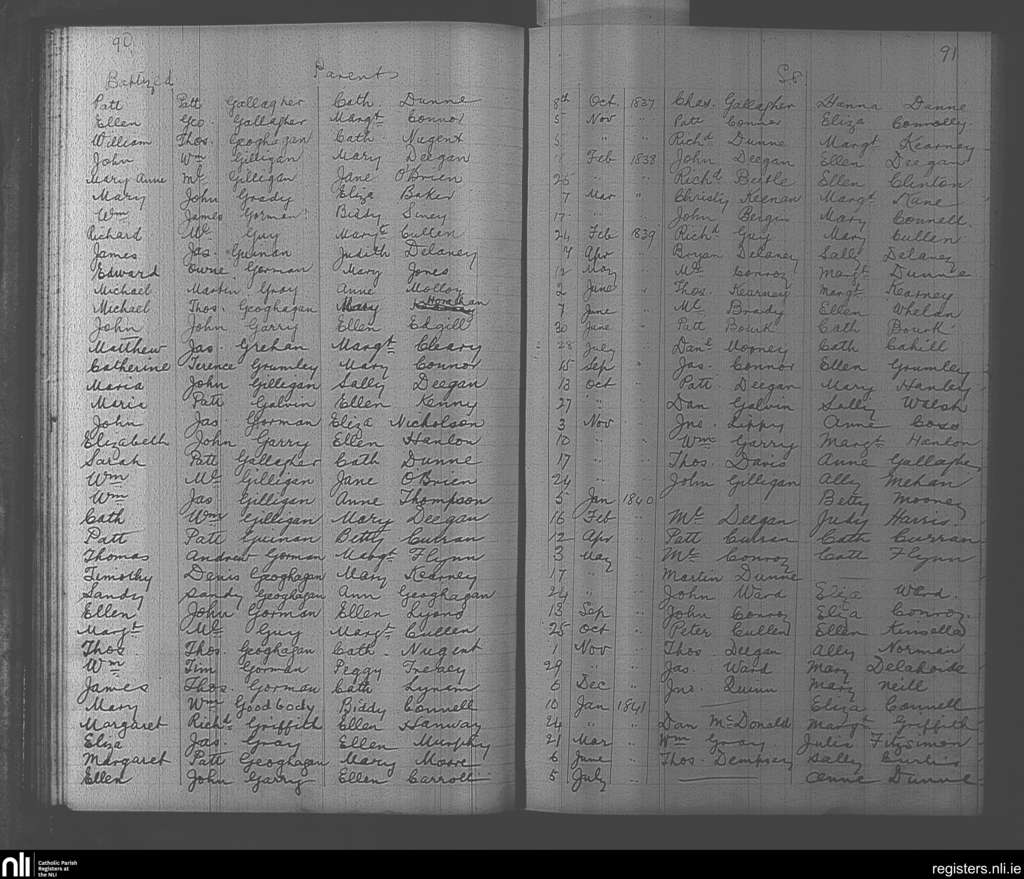 90 91
Baptized Parents Ss.
Patt Patt Gallagher Cath. Dunne 8th Oct 1837 Chas. Gallagher Hanna Dunne
Ellen Geo. Gallagher Margt Connor 5 Nov " Patt Connor Eliza Connolly
William Thos. Geoghagan Cath. Nugent 5 " " Richd Dunne Margt Kearney
John Wm Gilligan Mary Deegan Feb 1838 John Deegan Ellen Deegan
Mary Anne Ml. Gilligan Jane O'Brien 25 " " Richd Beetle Ellen Clinton
Mary John Grady Eliza Baker 7 Mar " Christy Keenan Margt Kane
Wm James Gorman Biddy Siney 17 " " John Bergin Mary Connell
Richard Ml. Guy Margt Cullen 24 Feb 1839 Richd Guy Mary Cullen
James Jas. Guinan Judith Delaney 14 Apr " Bryan Delaney Sally Delaney
Edward Owne Gorman Mary Jones 12 May " Ml. Conroy Margt Dunne
Michael Martin Gray Anne Molloy 2 June " Thos. Kearney Margt Kearney
Michael Thos. Geoghagan Mary Horahan 7 June " Ml. Brady Ellen Whelan
John John Garry Ellen Edgill 30 June " Patt Bourk Cath Bourk
Matthew Jas. Grehan Margt Cleary 28 July " Danl Mooney Cath Cahill
Catherine Terence Grumley Mary Connor 15 Sep " Jas. Connor Ellen Grumley
Maria John Gilligan Sally Deegan 13 Oct " Patt Deegan Mary Hanley
Maria Patt Galvin Ellen Kenny 27 " " Dan Galvin Sally Walsh
John Jas Gorman Eliza Nicholson 3 Nov " Jno. Lippy Anne Coss
Elizabeth John Garry Ellen Hanlon 10 " " Wm Garry Margt Hanlon
Sarah Patt Gallagher Cath Dunne 17 " " Thos. Davis Anne Gallagher
Wm Ml. Gilligan Jane O'Brien 24 " " John Gilligan Ally Mehan
Wm Jas. Gilligan Anne Thompson 5 Jan 1840 Betty Mooney
Cath Wm Gilligan Mary Deegan 16 Feb " Ml. Deegan Judy Harris
Patt Patt Guinan Betty Curran 12 Apr " Patt Curran Cath Curran
Thomas Andrew Gorman Margt Flynn 3 May " Ml. Conroy Catt Flynn
Timothy Denis Geoghagan Mary Kearney 17 " " Martin Dunne ——
Sandy Sandy Geoghagan Ann Geoghagan 24 " " John Ward Eliza Ward.
Ellen John Gorman Ellen Lyons 13 Sep " John Conroy Eliza Conroy
Margt Ml. Gury Margt Cullen 25 Oct " Peter Cullen Ellen Kinsella
Thos Thos. Geoghagan Cath. Nugent 1 Nov " Thos Deegan Ally Norman
Wm Tim Gorman Peggy Treacy 29 " " Jas. Ward Mary Delahoide
James Thos. Gorman Cath Lynam 6 Dec " Jno. Quinn Mary Neill
Mary Wm Goodbody Biddy Connell 10 Jan 1841 —— Eliza Connell
Margaret Richd Griffith Ellen Hanway 24 " " Dan McDonald Margt Griffith
Eliza Jas. Gray Ellen Murphy 21 Mar " Wm Gray Julia Fitzsimon
Margaret Patt Geoghagan Mary Moore 6 June " Thos. Dempsey Sally Curtis
Ellen John Garry Ellen Carroll 5 July " —— Anne Dunne
nli Catholic Parish
Registers at
the NLI
registers.nli.ie